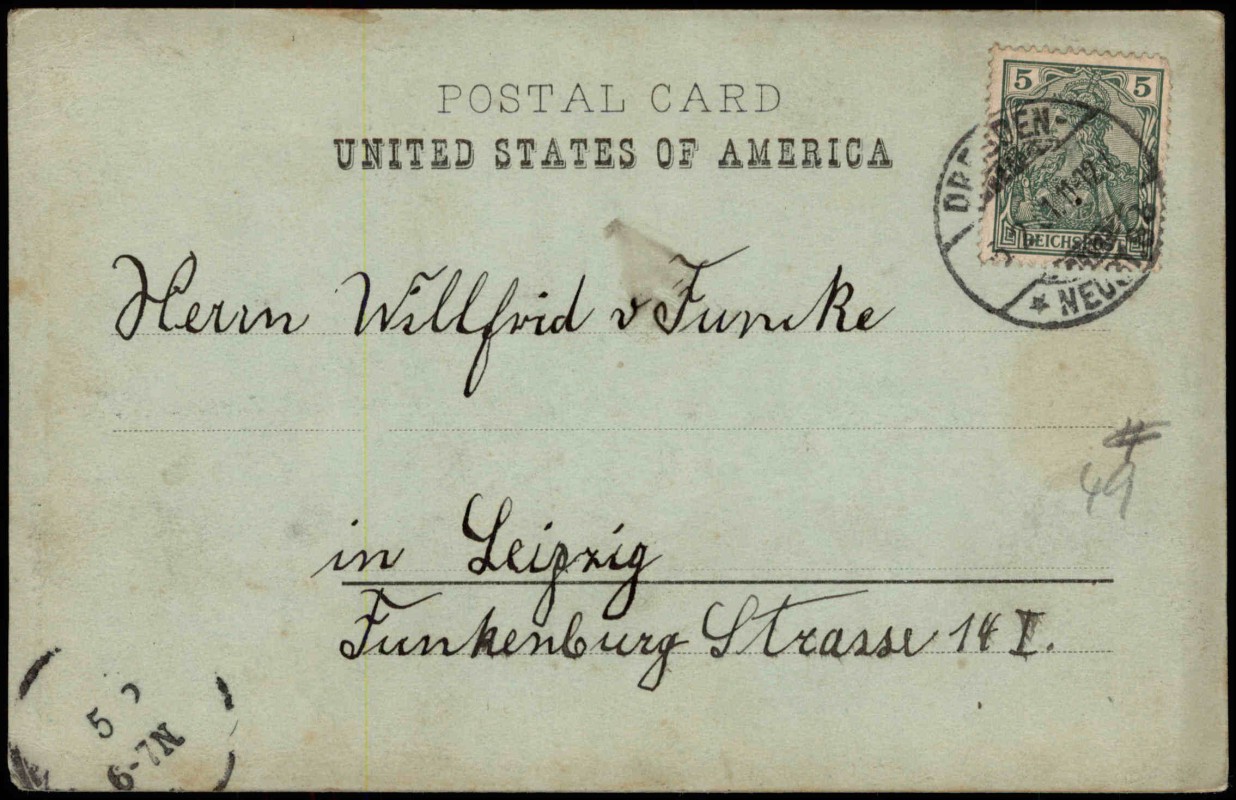 POSTAL CARD
UNITED STATES OF AMERICA
5 5
REICHSPOST
DRESDEN-
* NEUST
Herrn Willfrid v Funcke
in Leipzig
Funkenburg Strasse 14 I.
#
49
5
6-7N